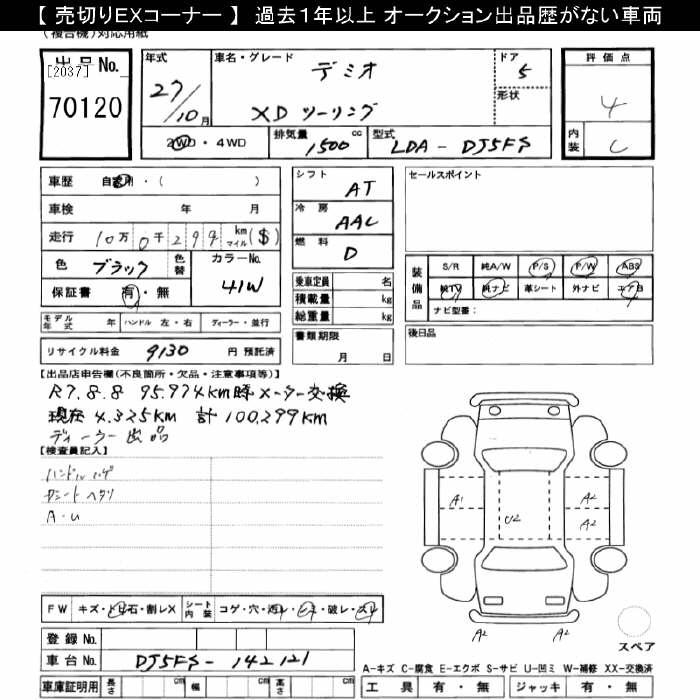 【 売切りEXコーナー 】 過去1年以上 オークション出品歴がない車両
(複合機)対応用紙
出品No.
[2037]
70120
年式
27/10月
車名・グレード
デミオ
XD ツーリング
ドア
5
形状
評価点
4
内装
C
2WD・4WD
排気量
1500 cc
型式
LDA - DJ5FS
車歴 自家用・( )
車検 年 月
走行 10万0千299 km マイル ($)
色 ブラック
色替
カラーNo.
41W
保証書 有・無
シフト
AT
冷房
AAC
燃料
D
乗車定員 名
積載量 kg
総重量 kg
書類期限
月 日
セールスポイント
装備品
S/R 純A/W P/S P/W ABS
純TV 純ナビ 革シート 外ナビ エアB
ナビ型番:
後日品
モデル年式 年 ハンドル 左・右 ディーラー・並行
リサイクル料金 9130 円 預託済
【出品店申告欄(不良箇所・欠品・注意事項等)】
R7.8.8 95.974km時メーター交換
現在 4.325km 計 100.299km
ディーラー出品
【検査員記入】
ハンドルハゲ
Dシートヘタリ
A・U
A1
U2
A2
A2
A2
A2
FW キズ・トビ石・割レX
シート内装 コゲ・穴・汚レ・キズ・破レ・スリ
登録No.
車台No. DJ5FS-142121
車庫証明用 長さ cm 幅 cm 高さ cm
スペア
A-キズ C-腐食 E-エクボ S-サビ U-凹ミ W-補修 XX-交換済
工具 有・無 ジャッキ 有・無